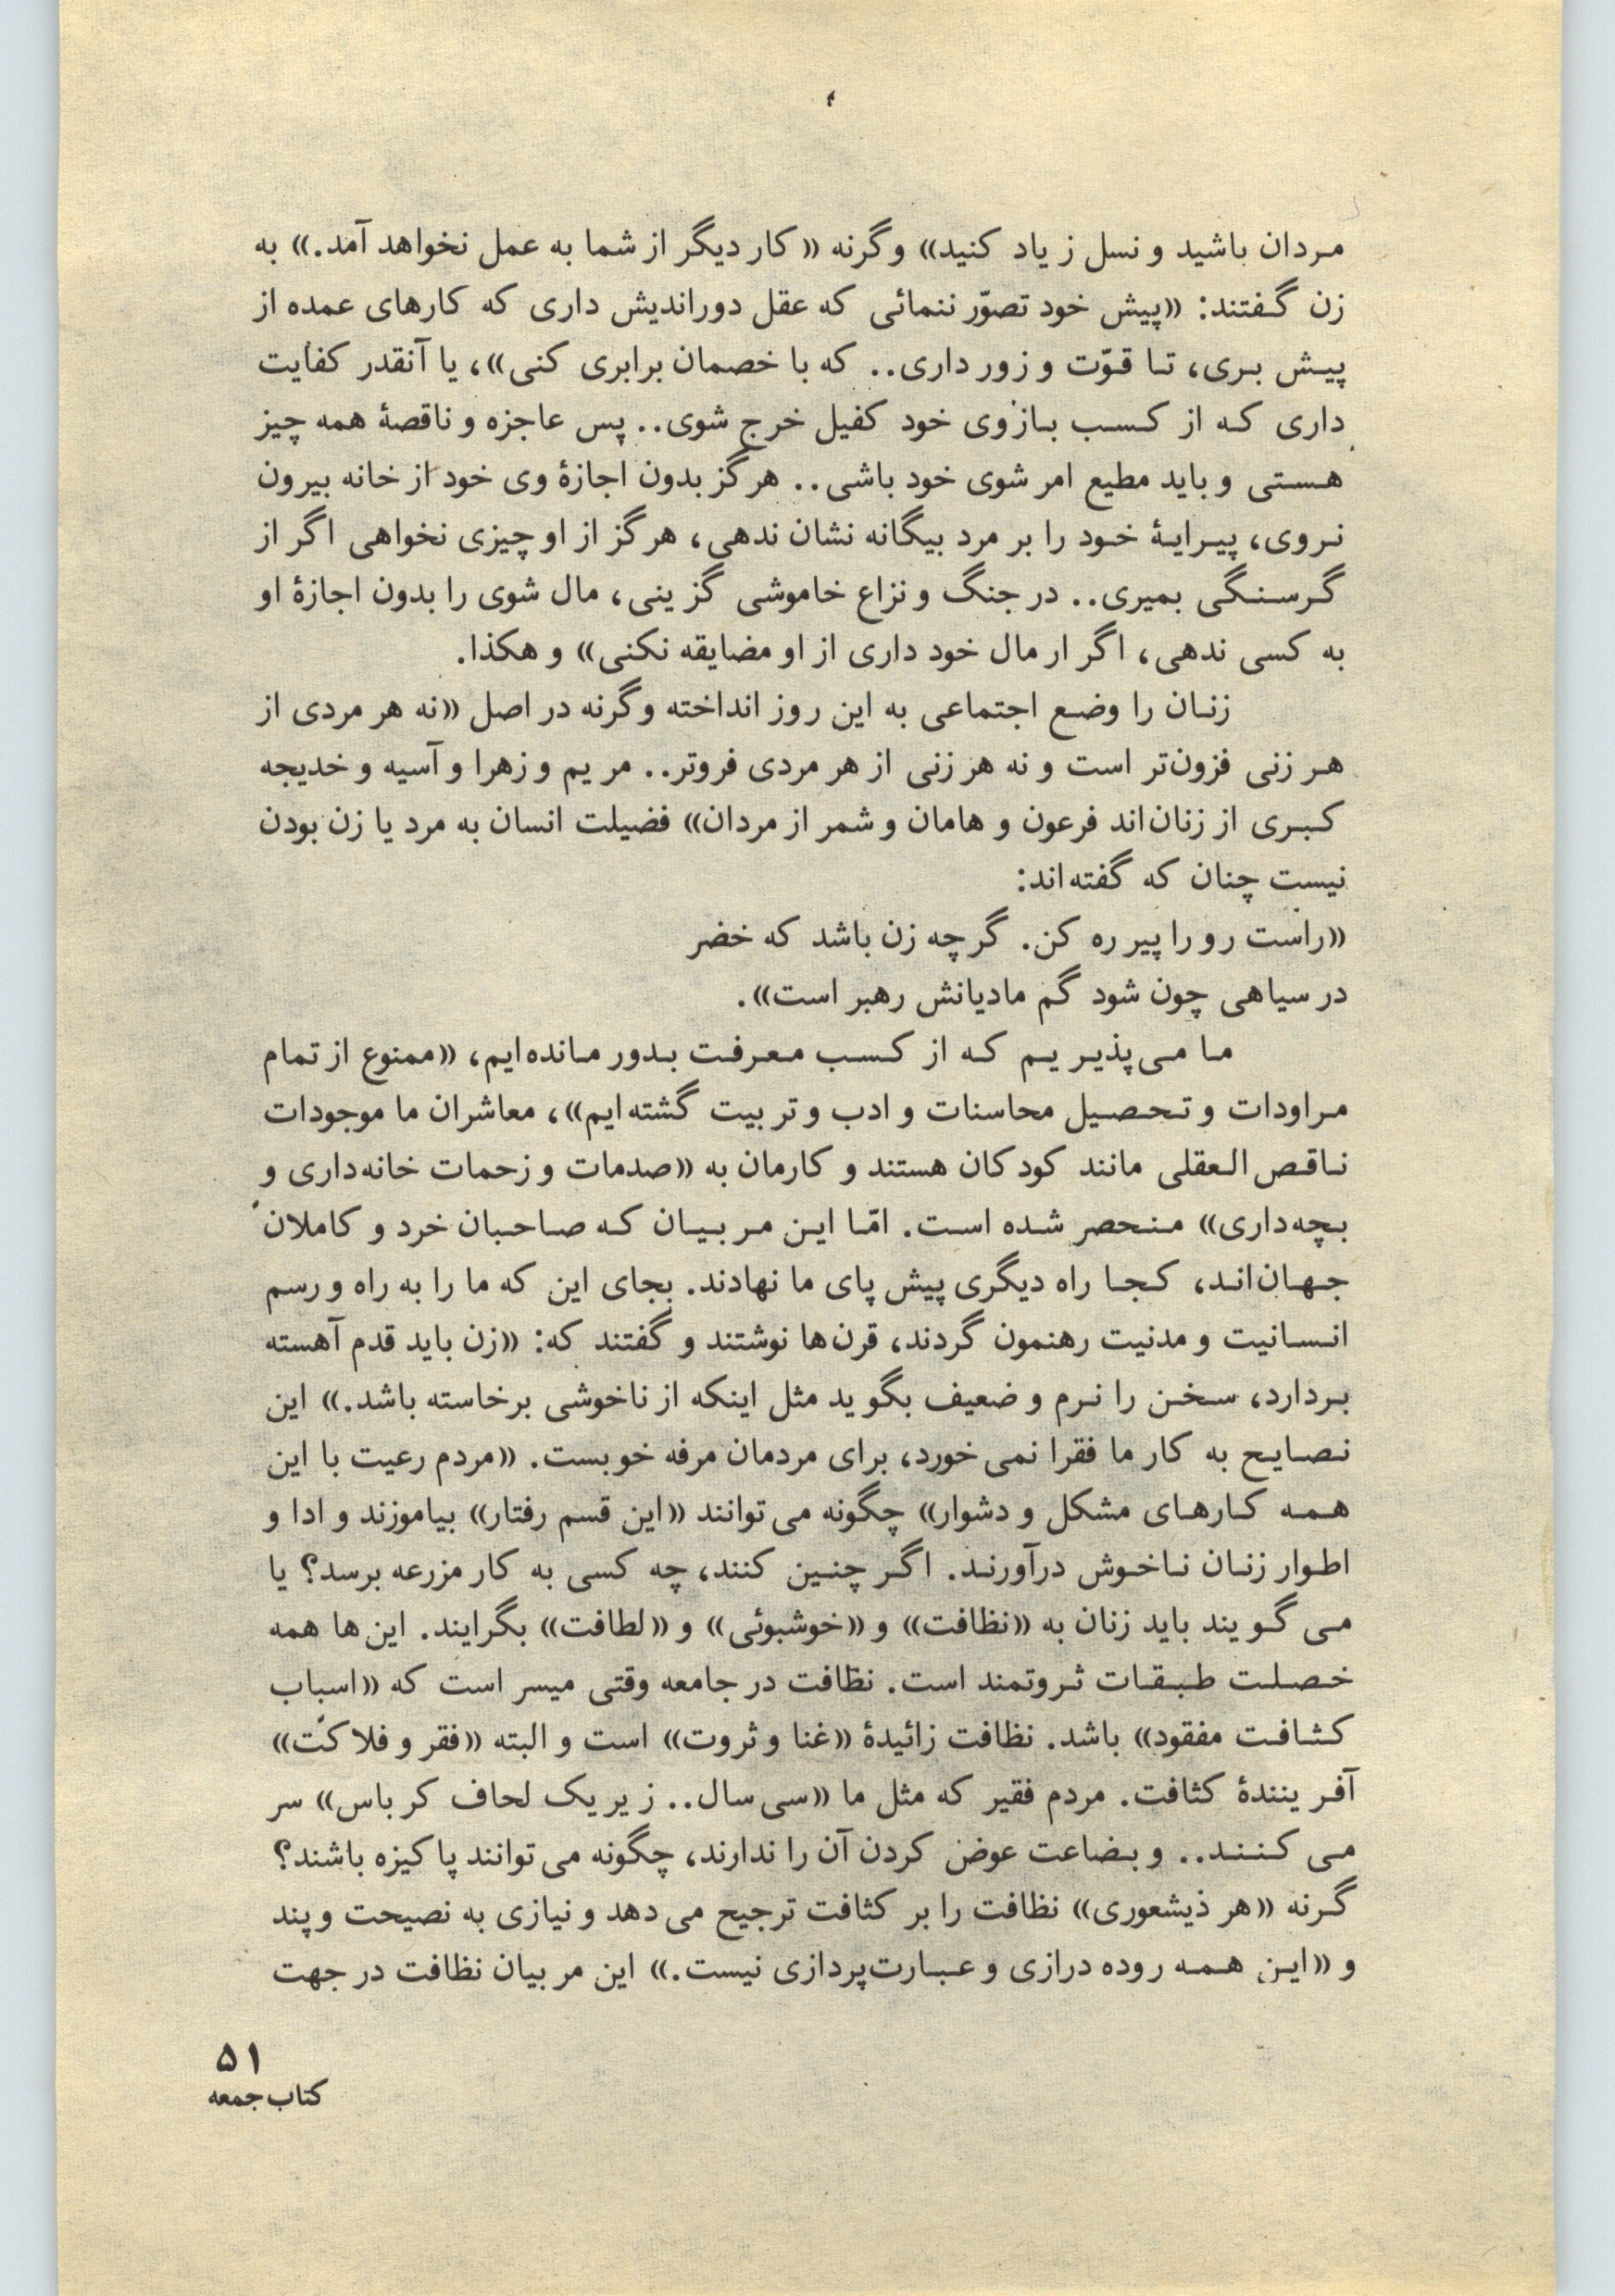 مردان باشید و نسل زیاد کنید» وگرنه «کار دیگر از شما به عمل نخواهد آمد.» به
زن گفتند: «پیش خود تصوّر ننمائی که عقل دوراندیش داری که کارهای عمده از
پیش بری، تا قوّت و زور داری.. که با خصمان برابری کنی»، یا آنقدر کفایت
داری که از کسب بازوی خود کفیل خرج شوی.. پس عاجزه و ناقصهٔ همه چیز
هستی و باید مطیع امر شوی خود باشی.. هرگز بدون اجازهٔ وی خود از خانه بیرون
نروی، پیرایهٔ خود را بر مرد بیگانه نشان ندهی، هرگز از او چیزی نخواهی اگر از
گرسنگی بمیری.. در جنگ و نزاع خاموشی گزینی، مال شوی را بدون اجازهٔ او
به کسی ندهی، اگر ار مال خود داری از او مضایقه نکنی» و هکذا.
زنان را وضع اجتماعی به این روز انداخته وگرنه در اصل «نه هر مردی از
هر زنی فزون‌تر است و نه هر زنی از هر مردی فروتر.. مریم و زهرا و آسیه و خدیجه
کبری از زنان‌اند فرعون و هامان و شمر از مردان» فضیلت انسان به مرد یا زن بودن
نیست چنان که گفته‌اند:
«راست رو را پیر ره کن. گرچه زن باشد که خضر
در سیاهی چون شود گم مادیانش رهبر است».
ما می‌پذیریم که از کسب معرفت بدور مانده‌ایم، «ممنوع از تمام
مراودات و تحصیل محاسنات و ادب و تربیت گشته‌ایم»، معاشران ما موجودات
ناقص‌العقلی مانند کودکان هستند و کارمان به «صدمات و زحمات خانه‌داری و
بچه‌داری» منحصر شده است. امّا این مربیان که صاحبان خرد و کاملان
جهان‌اند، کجا راه دیگری پیش پای ما نهادند. بجای این که ما را به راه و رسم
انسانیت و مدنیت رهنمون گردند، قرن‌ها نوشتند و گفتند که: «زن باید قدم آهسته
بردارد، سخن را نرم و ضعیف بگوید مثل اینکه از ناخوشی برخاسته باشد.» این
نصایح به کار ما فقرا نمی‌خورد، برای مردمان مرفه خوبست. «مردم رعیت با این
همه کارهای مشکل و دشوار» چگونه می‌توانند «این قسم رفتار» بیاموزند و ادا و
اطوار زنان ناخوش درآورند. اگر چنین کنند، چه کسی به کار مزرعه برسد؟ یا
می‌گویند باید زنان به «نظافت» و «خوشبوئی» و «لطافت» بگرایند. این‌ها همه
خصلت طبقات ثروتمند است. نظافت در جامعه وقتی میسر است که «اسباب
کثافت مفقود» باشد. نظافت زائیدهٔ «غنا و ثروت» است و البته «فقر و فلاکت»
آفرینندهٔ کثافت. مردم فقیر که مثل ما «سی سال.. زیر یک لحاف کرباس» سر
می‌کنند.. و بضاعت عوض کردن آن را ندارند، چگونه می‌توانند پاکیزه باشند؟
گرنه «هر ذیشعوری» نظافت را بر کثافت ترجیح می‌دهد و نیازی به نصیحت و پند
و «این همه روده درازی و عبارت‌پردازی نیست.» این مربیان نظافت در جهت
۵۱
کتاب جمعه